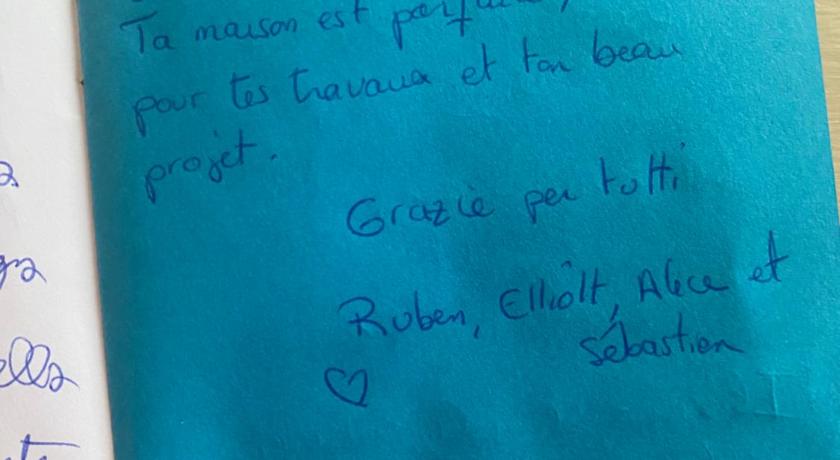 Ta maison est
pour tes travaux et ton beau
projet.
Grazie per tutti
Ruben, Elliott, Alice et
Sébastien